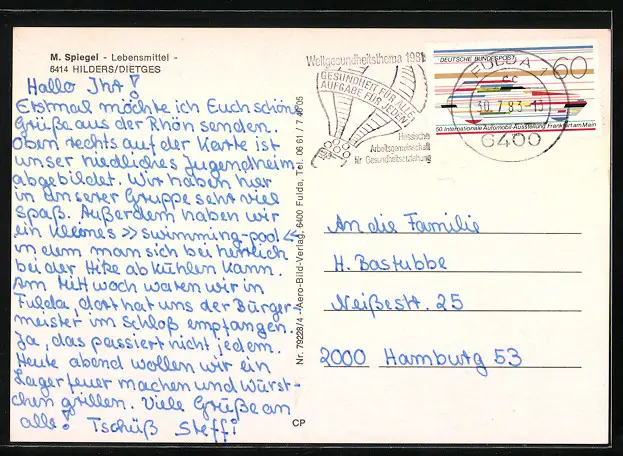 M. Spiegel - Lebensmittel -
6414 HILDERS/DIETGES
Hallo Ihr!
Erstmal möchte ich Euch schöne
Grüße aus der Rhön senden.
Oben rechts auf der Karte ist
unser niedliches Jugendheim
abgebildet. Wir haben hier
in unserer Gruppe sehr viel
Spaß. Außerdem haben wir
ein kleines »swimming-pool«
in dem man sich bei herrlich
bei der Hitze abkühlen kann.
Am Mittwoch waren wir in
Fulda, dort hat uns der Bürger-
meister im Schloß empfangen.
Ja, das passiert nicht jedem.
Heute abend wollen wir ein
Lagerfeuer machen und Würst-
chen grillen. Viele Grüße an
alle! Tschüß Steffi
Nr. 79228/4 - Aero-Bild-Verlag, 6400 Fulda, Tel. 06 61 / 7 40 05
CP
Weltgesundheitsthema 1981
GESUNDHEIT FÜR ALLE
AUFGABE FÜR JEDEN
Hessische
Arbeitsgemeinschaft
für Gesundheitserziehung
DEUTSCHE BUNDESPOST
60
50. Internationale Automobil-Ausstellung Frankfurt am Main
FULDA 1
cc
30.7.83
6400
An die Familie
H. Bastubbe
Neißestr. 25
2000 Hamburg 53